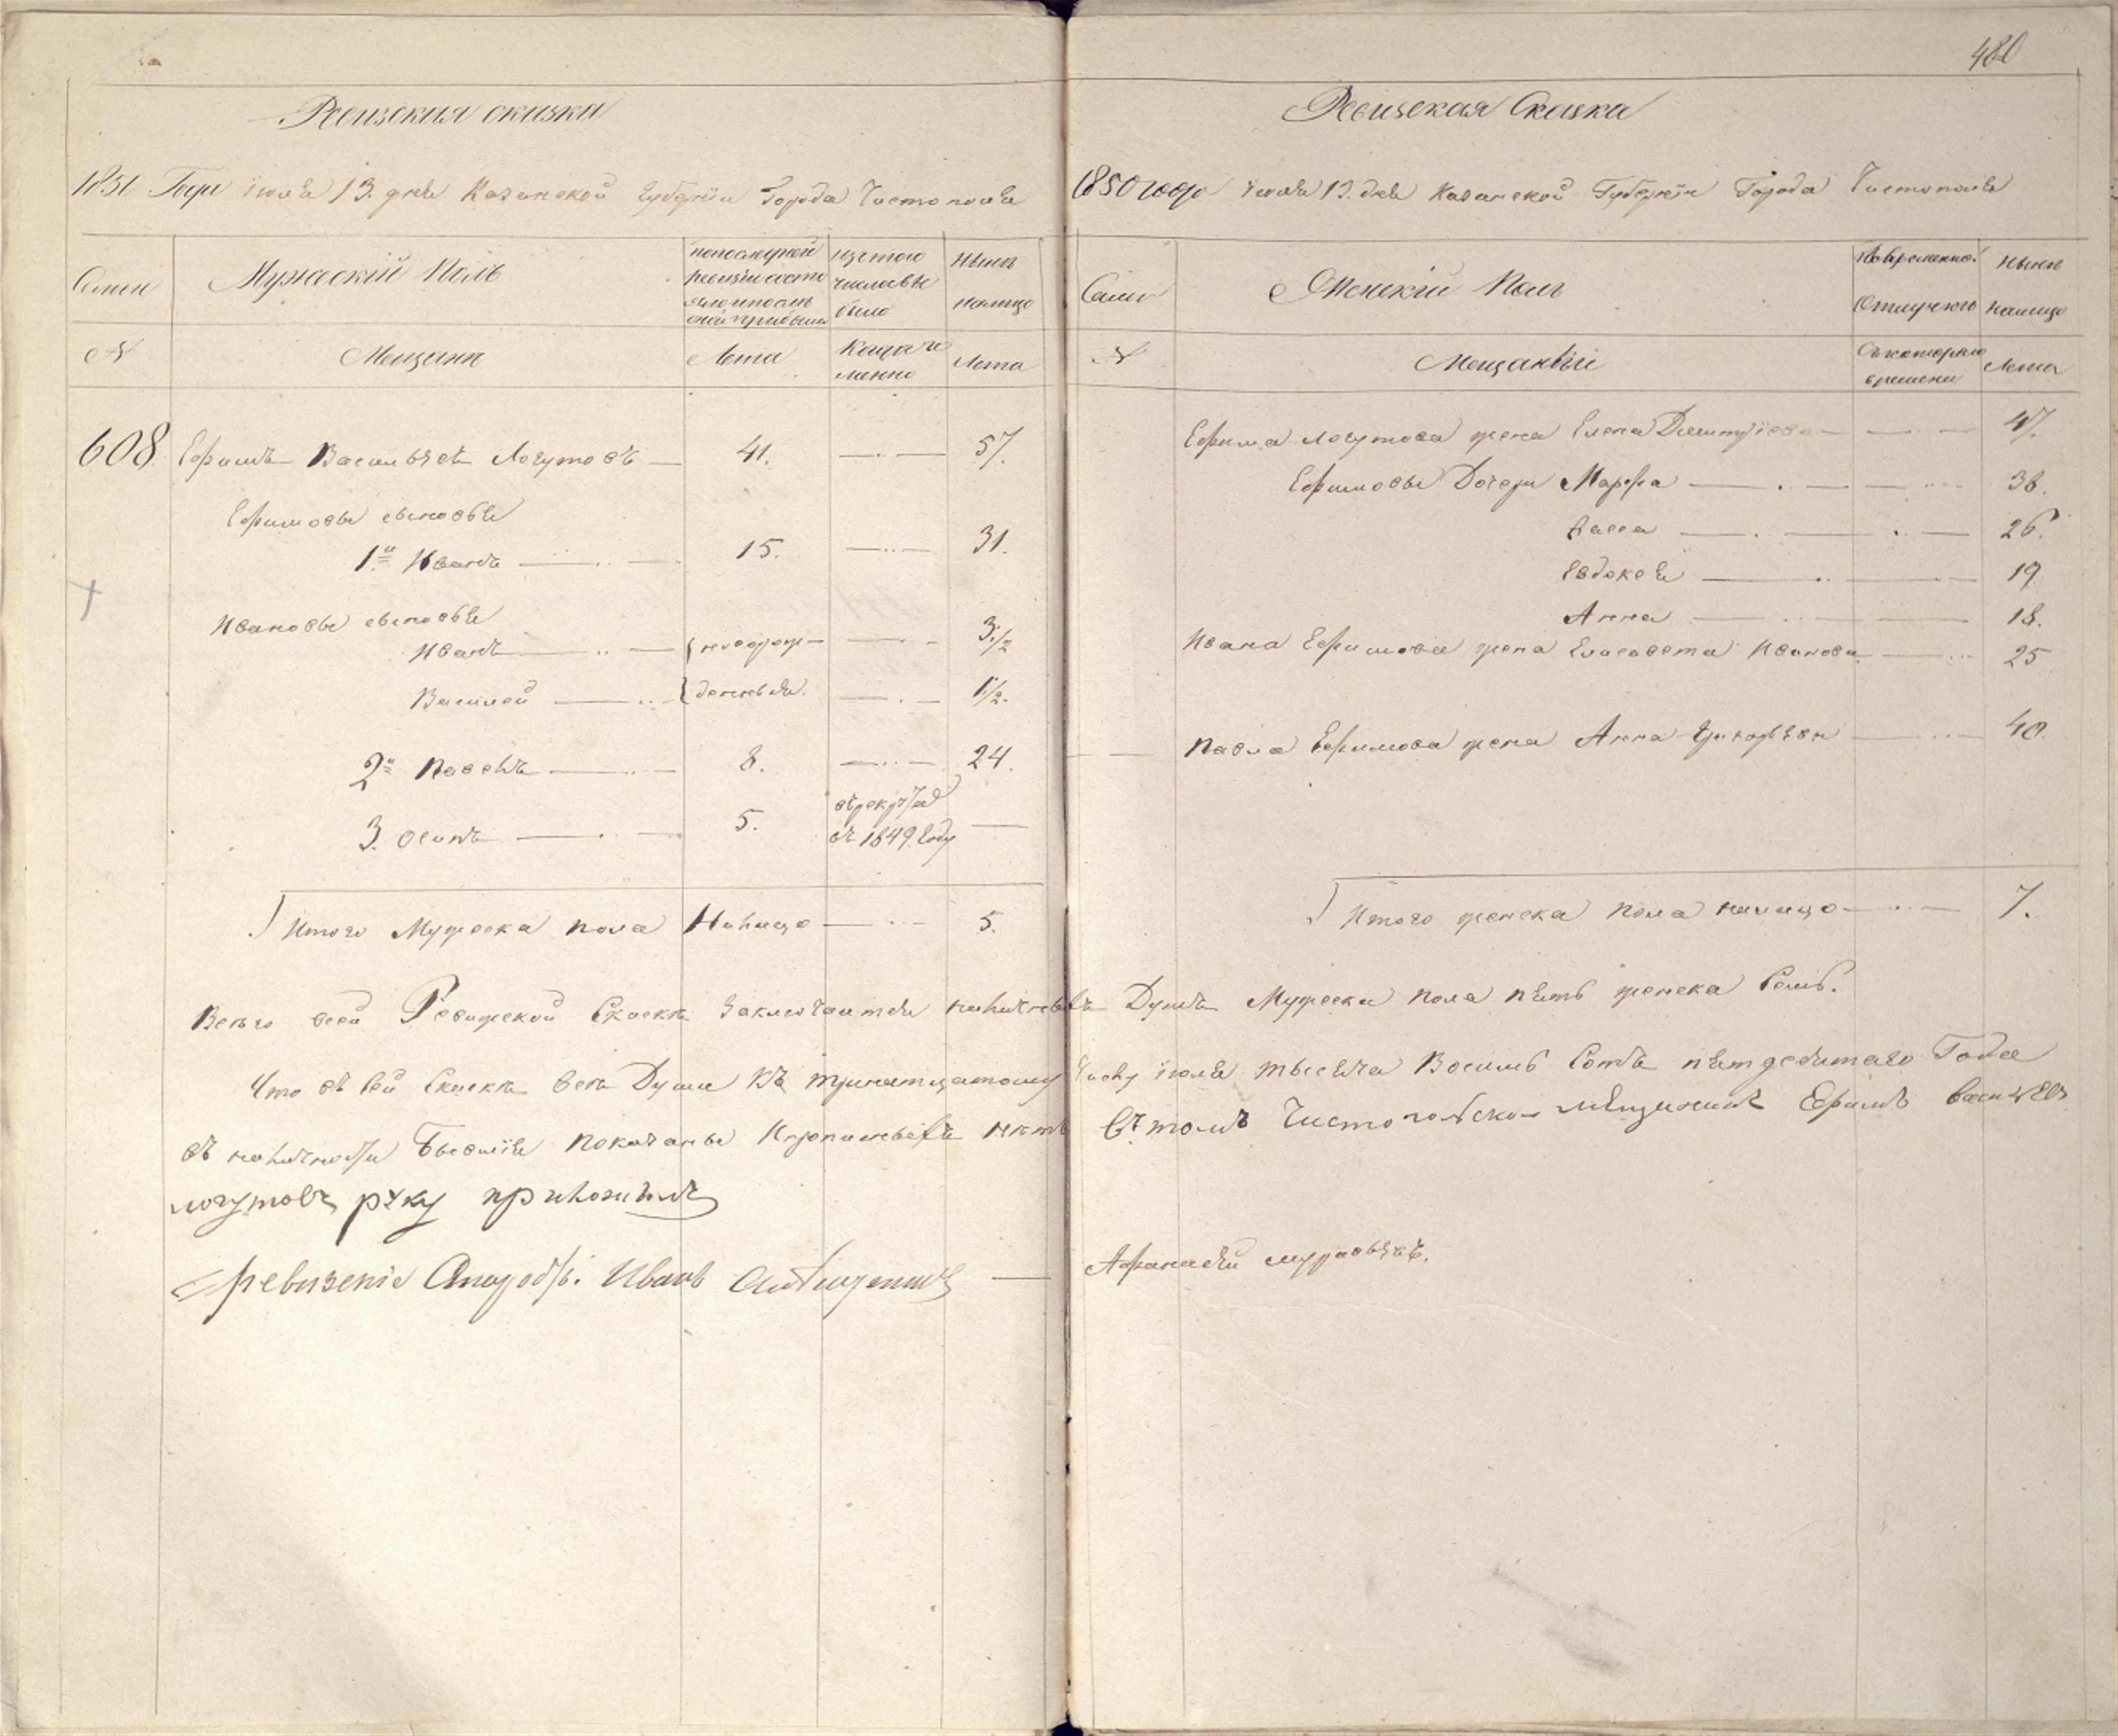 480
Ревизская сказка
1850 Года іюля 13. дня Казанской Губерніи Города Чистополя
Семьи
Мужескій Полъ
по последней ревизіи состояло и после оной прибыло
Изъ того числа выбыло
Ныне налицо
№
Мещане
Лета
Когда именно
Лета
608 Ефимъ Васильевъ Логутовъ 41. 57.
Ефимовы сыновья
1й Иванъ 15. 31.
Ивановы сыновья
Иванъ новорож- 3 1/2
Василей денныя. 1 1/2.
2й Павелъ 8. 24.
3. Осипъ 5. въ рекруты въ 1849 Году
Итого Мужеска пола Налицо 5.
Ревизская Сказка
1850 года іюля 13. дня Казанской Губерніи Города Чистополя
Семьи
Женскій Полъ
Во временной Отлучке
Ныне налицо
№
Мещанки
Съ котораго времени
Лета
Ефима Логутова жена Елена Дмитріева 47.
Ефимовы Дочери Марфа 36.
Васса 26.
Евдокея 19
Анна 18.
Ивана Ефимова жена Елисавета Иванова 25
Павла Ефимова жена Анна Григорьева 40.
Итого женска пола налицо 7.
Всего всей Ревижской Скаске заключаится наличныхъ Душъ Мужеска пола пять женска Семь.
Что въ сей Скаске все Души къ тринатцатому Числу іюля тысяча Восимь Сотъ пятдесятаго Года
въ наличности Бывшія показаны И прописныхъ нетъ Въ томъ Чистопольской мещининъ Ефимъ Васильевъ
логутовъ руку приложилъ
Афанасей муравьевъ.